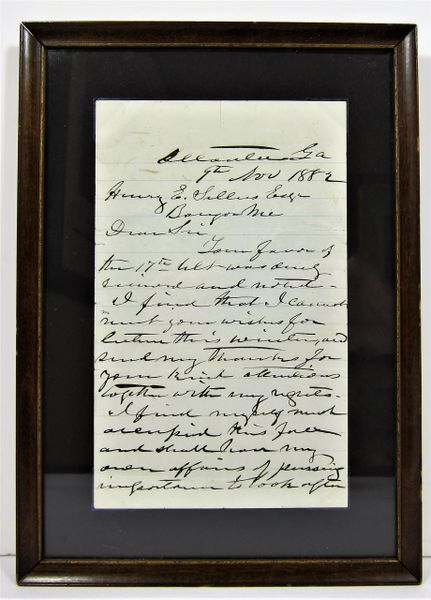 Atlanta Ga
9th Nov 1882
Henry E. Sellers Esqr
Bangor Me
Dear Sir
Your favor of
the 17th ult was duly
received and noted.
I find that I cannot
meet your wishes for
lecture this winter, and
send my thanks for
your kind attentions
together with my regrets.
I find myself much
occupied this fall
and shall have my
own affairs of pressing
importance to look after